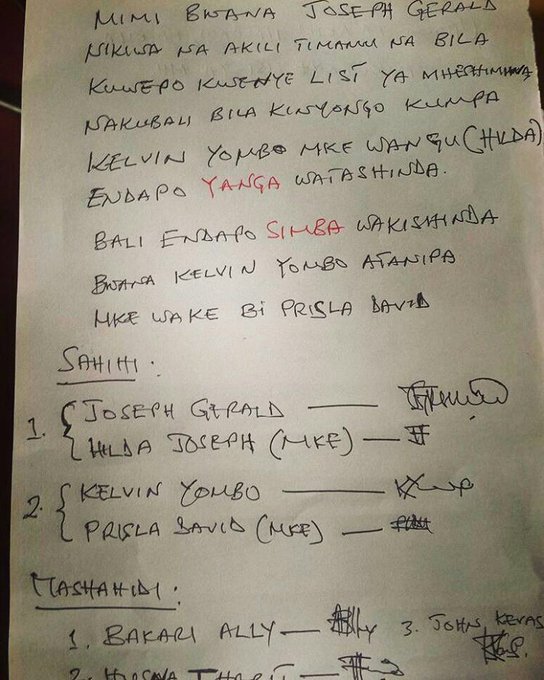 MIMI BWANA JOSEPH GERALD
NIKIWA NA AKILI TIMAMU NA BILA
KUWEPO KWENYE LIST YA MHESHIMIWA
NAKUBALI BILA KINYONGO KUMPA
KELVIN YOMBO MKE WANGU (HILDA)
ENDAPO YANGA WATASHINDA.
BALI ENDAPO SIMBA WAKISHINDA
BWANA KELVIN YOMBO ATANIPA
MKE WAKE BI PRISLA DAVID
SAHIHI:
1. JOSEPH GERALD —
HILDA JOSEPH (MKE) —
2. KELVIN YOMBO —
PRISLA DAVID (MKE) —
MASHAHIDI:
1. BAKARI ALLY — 3. JOHN KEVAS
2.